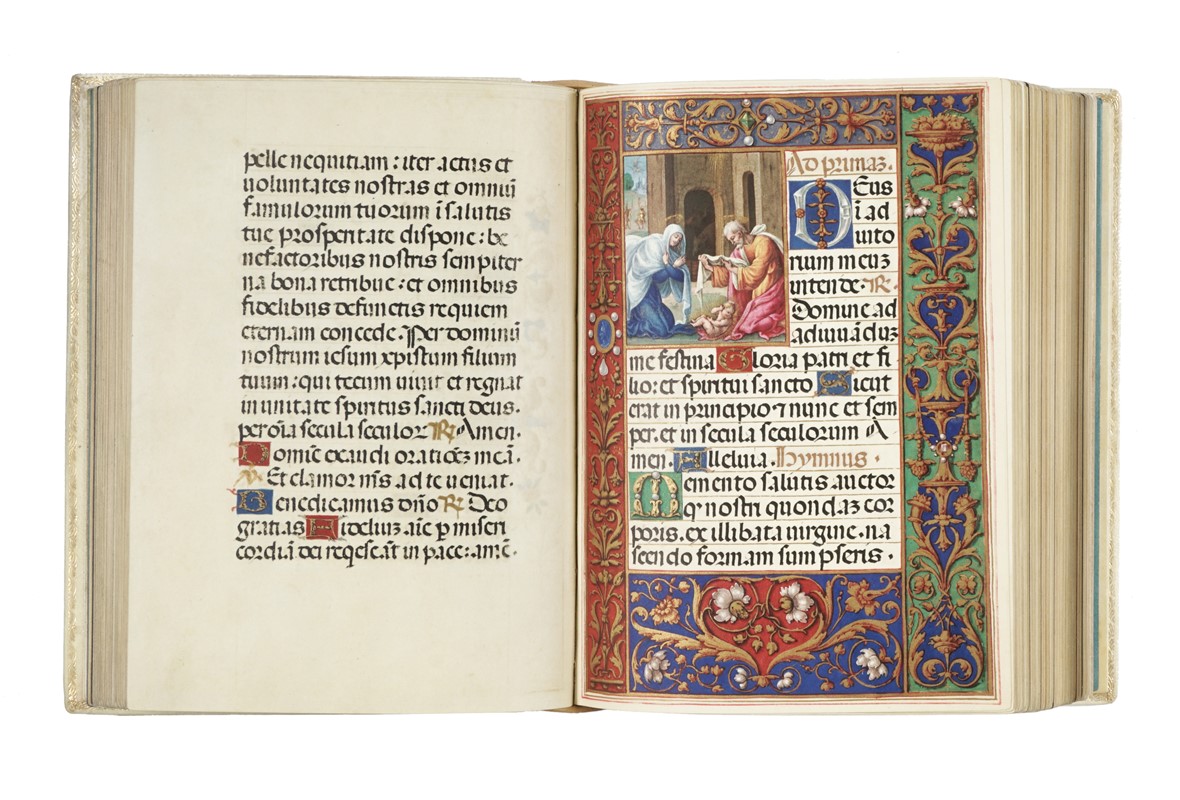 pelle nequitiam : iter actus et
uoluntates nostras et omniū
famulorum tuorum ī salutis
tue prosperitate dispone : be
nefactoribus nostris sempiter
na bona retribue : et omnibus
fidelibus defunctis requiem
eternam concede. Per dominū
nostrum iesum xpistum filium
tuum : qui tecum uiuit et regnat
in unitate spiritus sancti deus.
per oīa secula seculor R Amen.
Domine exaudi orationē meā.
V. Et clamor meus ad te ueniat.
Benedicamus dn̄o R Deo
gratias Fideliuz aīe p miseri
cordiā dei reqescāt in pace : amē.
Ad primaz.
Deus
ī ad
iuto
rium meuz
intende. R.
Domine ad
adiuuāduz
me festina Gloria patri et fi
lio : et spiritui sancto Sicut
erat in principio 7 nunc et sem
per. et in secula seculorum A
men. Alleluia. Hymnus.
Memento salutis auctor
q nostri quondaz cor
poris. ex illibata uirgine. na
scendo formam sumpseris.